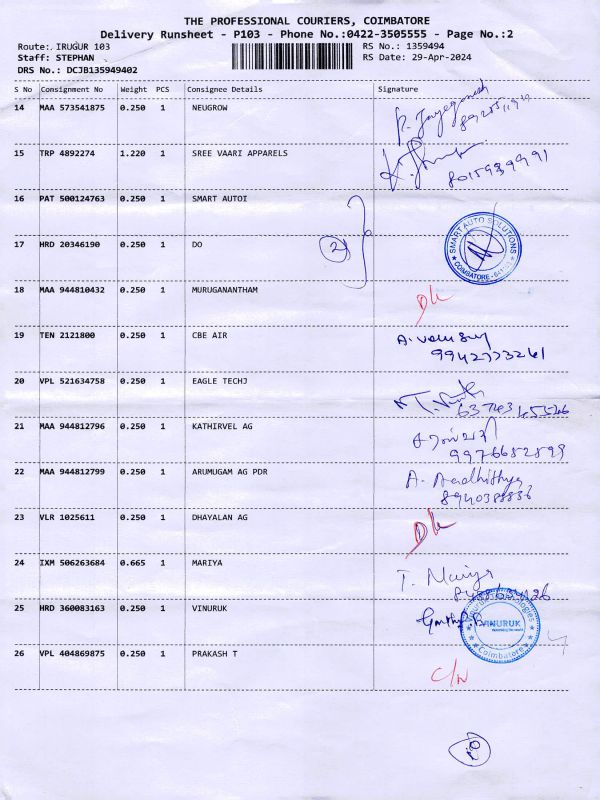 THE PROFESSIONAL COURIERS, COIMBATORE
Delivery Runsheet - P103 - Phone No.:0422-3505555 - Page No.:2
Route: IRUGUR 103 RS No.: 1359494
Staff: STEPHAN RS Date: 29-Apr-2024
DRS No.: DCJB135949402
S No Consignment No Weight PCS Consignee Details Signature
14 MAA 573541875 0.250 1 NEUGROW
15 TRP 4892274 1.220 1 SREE VAARI APPARELS
8015939991
16 PAT 500124763 0.250 1 SMART AUTOI
17 HRD 20346190 0.250 1 DO 2
SMART AUTO SOLUTIONS
COIMBATORE
18 MAA 944810432 0.250 1 MURUGANANTHAM
19 TEN 2121800 0.250 1 CBE AIR
20 VPL 521634758 0.250 1 EAGLE TECHJ
21 MAA 944812796 0.250 1 KATHIRVEL AG
9976652599
22 MAA 944812799 0.250 1 ARUMUGAM AG PDR A. Aadhithya
23 VLR 1025611 0.250 1 DHAYALAN AG
24 IXM 506263684 0.665 1 MARIYA T. Mariya
25 HRD 360083163 0.250 1 VINURUK
VINURUK
Coimbatore
26 VPL 404869875 0.250 1 PRAKASH T C/N